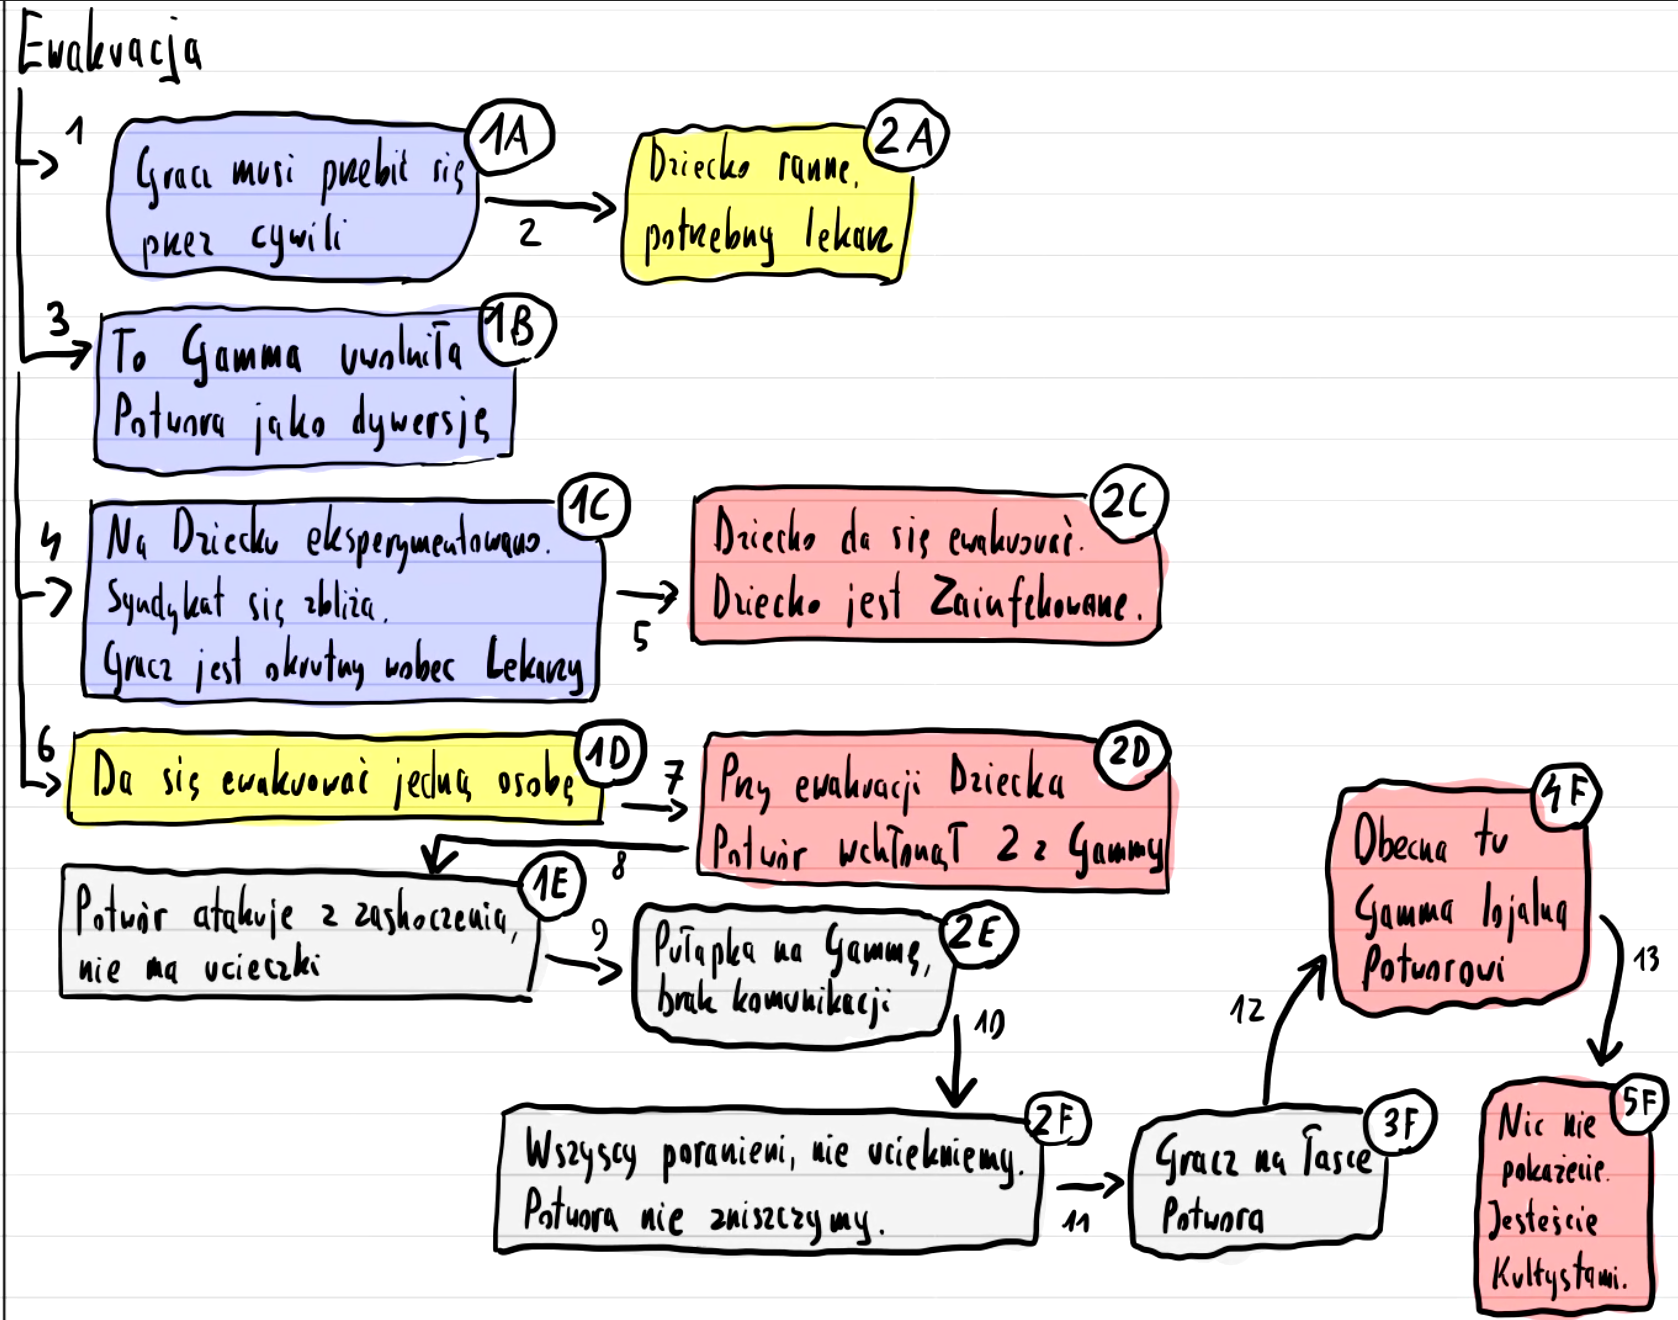 Ewakuacja
1
1A
Gracz musi przebić się
przez cywili
2
2A
Dziecko ranne,
potrzebny lekarz
3
1B
To Gamma uwolniła
Potwora jako dywersję
4
1C
Na Dziecku eksperymentowano.
Syndykat się zbliża.
Gracz jest okrutny wobec Lekarzy
5
2C
Dziecko da się ewakuować.
Dziecko jest Zainfekowane.
6
1D
Da się ewakuować jedną osobę
7
2D
Przy ewakuacji Dziecka
Potwór wchłonął 2 z Gammy
8
1E
Potwór atakuje z zaskoczenia,
nie ma ucieczki
9
2E
Pułapka na Gammę,
brak komunikacji
10
2F
Wszyscy poranieni, nie uciekniemy.
Potwora nie zniszczymy.
11
3F
Gracz na łasce
Potwora
12
4F
Obecna tu
Gamma lojalna
Potworowi
13
5F
Nic nie
pokażecie.
Jesteście
Kultystami.